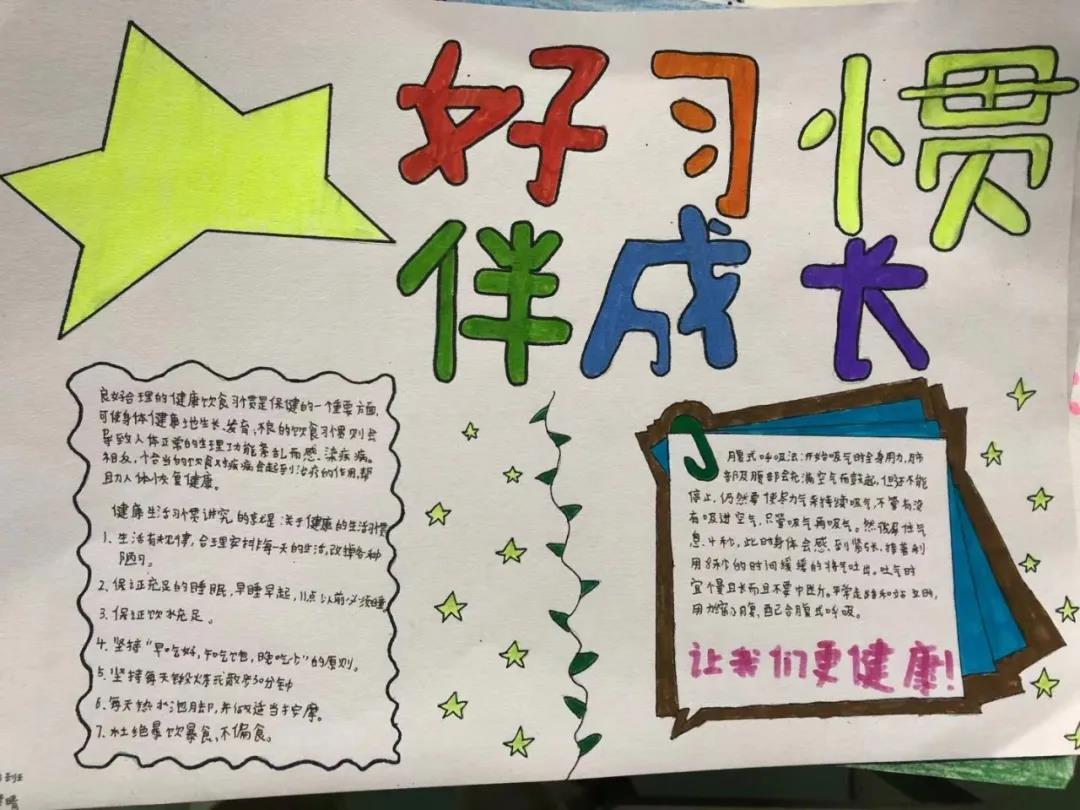 好习惯
伴成长
良好合理的健康饮食习惯是保健的一个重要方面,
可使身体健康地生长、发育,不良的饮食习惯则会
导致人体正常的生理功能紊乱而感染疾病。
相反,恰当的饮食对疾病会起到治疗的作用,帮
助人体恢复健康。
健康生活习惯讲究的就是关于健康的生活习惯
1. 生活有规律,合理安排每一天的生活,改掉各种
陋习。
2. 保证充足的睡眠,早睡早起,11点以前必须睡
3. 保证饮水充足。
4. 坚持“早吃好,午吃饱,晚吃少”的原则。
5. 坚持每天锻炼或散步30分钟
6. 每天热水泡脚,并做适当按摩。
7. 杜绝暴饮暴食,不偏食。
腹式呼吸法:开始吸气时全身用力,肺
部及腹部会充满空气而鼓起,但还不能
停止,仍然要使尽力气来持续吸气,不管有没
有吸进空气,只管吸气再吸气。然后屏住气
息4秒,此时身体会感到紧张,接着利
用8秒的时间缓缓的将气吐出。吐气时
宜慢且长而且不要中断。平常走路和站立时,
用力缩小腹,配合腹式呼吸。
让我们更健康!
班
晴